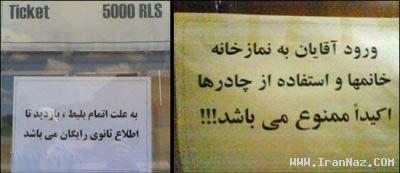 Ticket 5000 RLS
به علت اتمام بلیط ، بازدید تا
اطلاع ثانوی رایگان می باشد
ورود آقایان به نمازخانه
خانمها و استفاده از چادرها
اکیداً ممنوع می باشد!!!
www.IranNaz.com